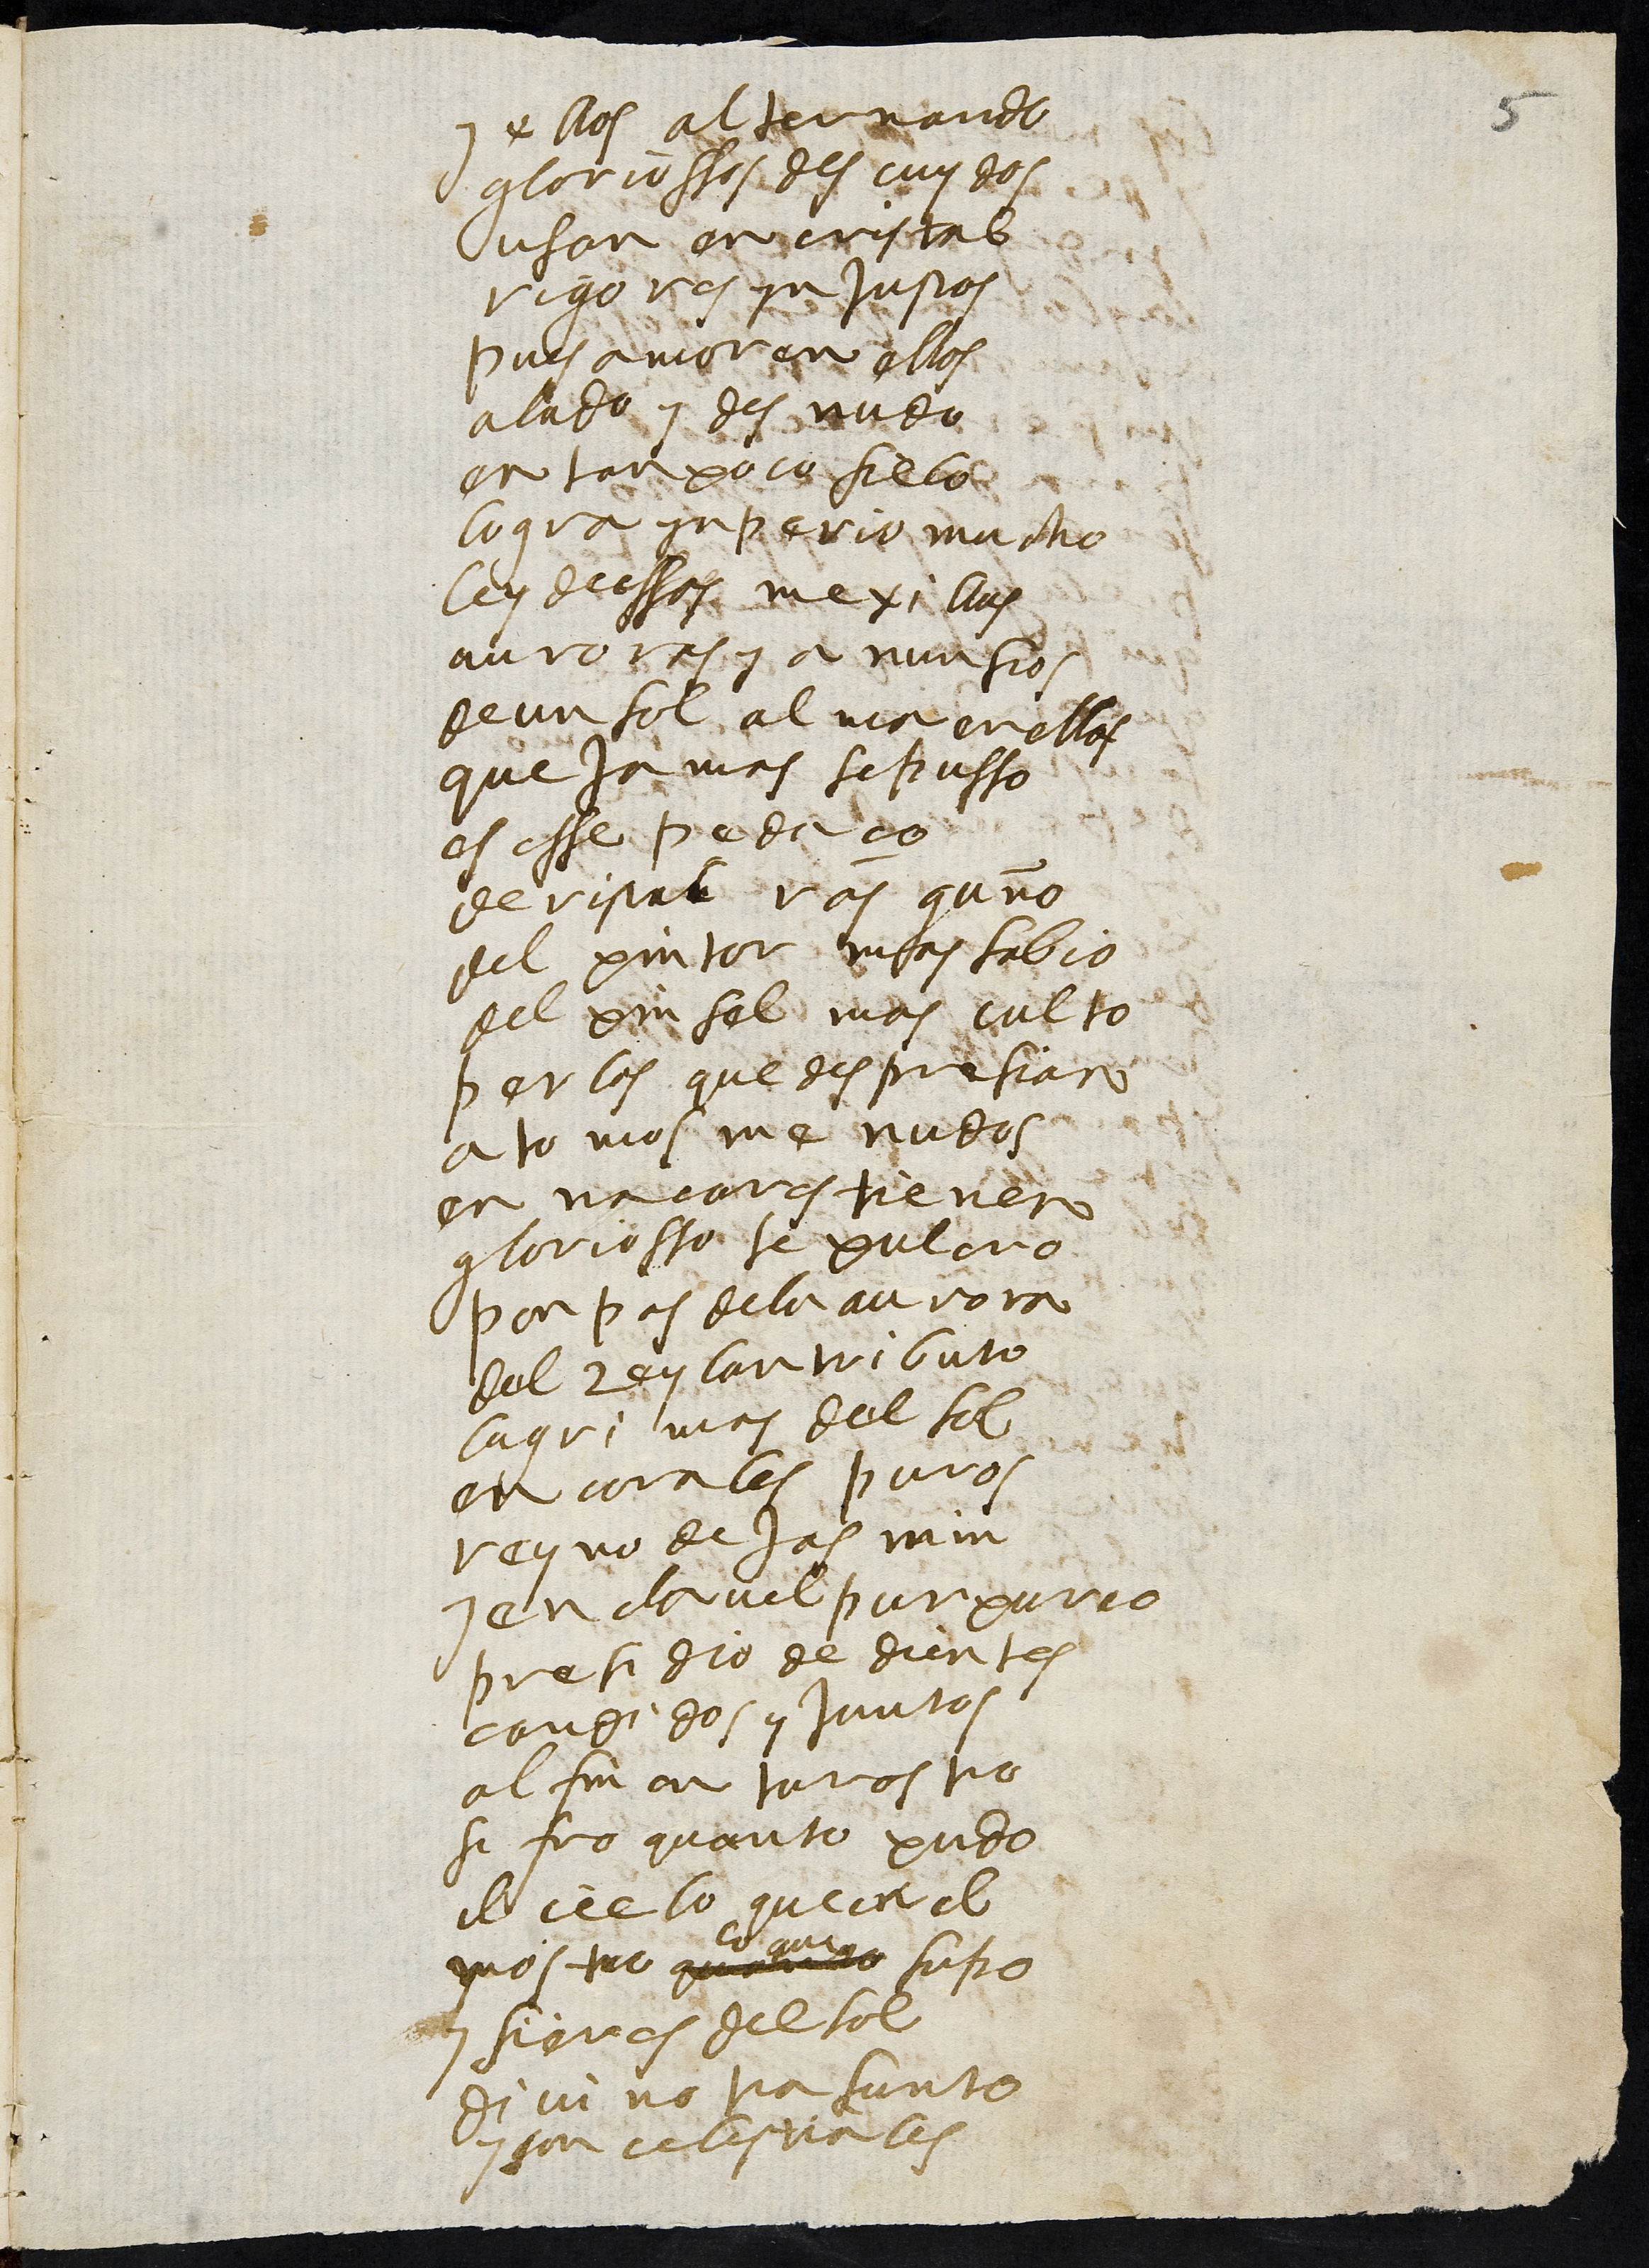 5
y ellos alternando
gloriossos descuydos
usan en cristal
rigores ynjustos
pues amor en ellos
alado y desnudo
en tan poco sielo
logra ynperio mucho
ley de essas mexillas
auroras y anunsios
de un sol al mar en ellas
que jamas se pusso
es esse pedaço
de cristal rasguño
del pintor mas sabio
del pinsel mas culto
perlas que despresian
atomos menudos
en nacares tienen
gloriosso sepulcro
ponpas de la aurora
del Rey lan tributo
lagrimas del sol
en corales puros
reyno de jasmin
y en clavel purpureo
presidio de dientes
candidos y juntos
al fin en tu rostro
sifro quanto pudo
el cielo que en el
mostro lo que supo
y si eres del sol
divino trasunto
y son celestiales